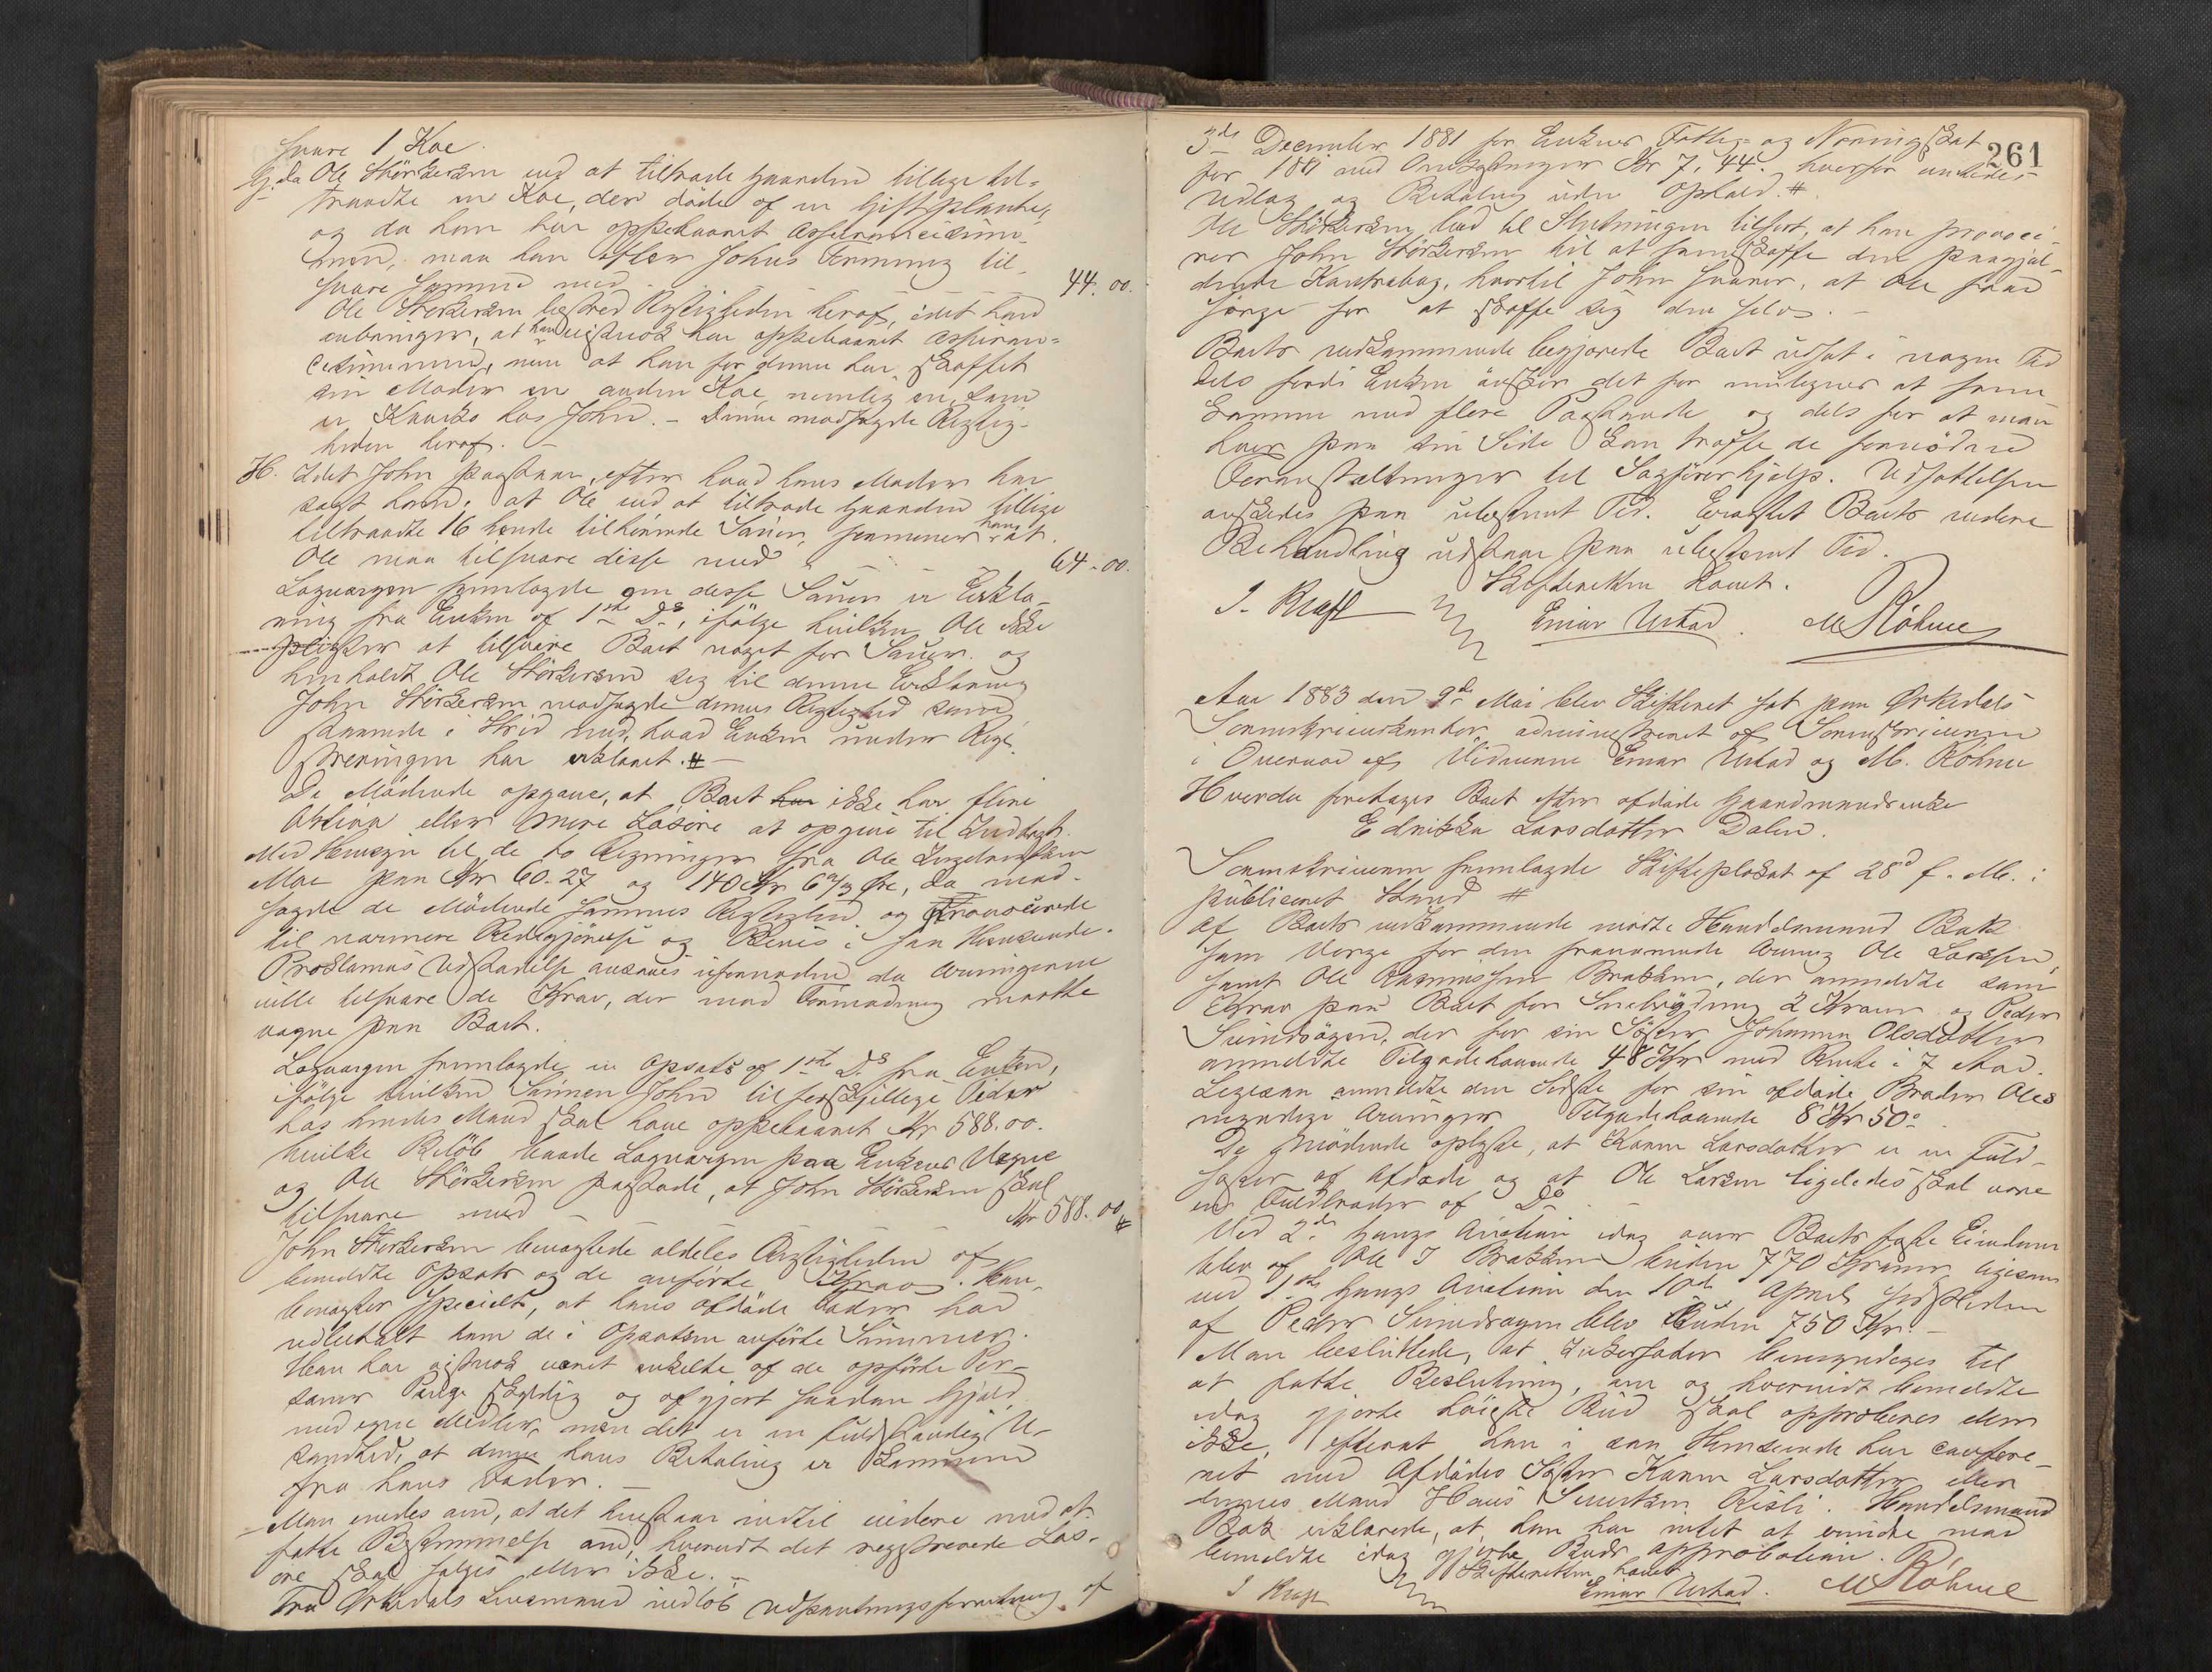 svare 1 Koe.
G. da Ole Størkersen ved at tiltræde Gaarden tillige til-
traadte en Koe, der døde af en Giftplante,
og da han har oppebaaret Assurancesum-
men, maa han efter Johns Formening til-
svare samme med 44.00.
Ole Størkersen bestred Rigtigheden heraf, idet han
anbringer, at han vistnok har oppebaaret Assuran-
cesummen, men at han for denne har skaffet
sin Moder en anden Koe, nemlig en, som
er hos John. - Denne modsagde Rigtig-
heden heraf. -
H. Idet John paastaar, efter hvad hans Moder har
sagt ham, at Ole ved at tiltræde Gaarden tillige
tiltraadte 16 hende tilhørende Sauer, formener han at
Ole maa tilsvare disse med 64.00.
Laugværgen fremlagde om disse Sauer en Erklæ-
ring fra Enken af 1ste Ds, ifølge hvilken Ole ikke
pligter at tilsvare Boet noget for Sauer og
henholdt Ole Størkersen sig til denne Erklæring
John Størkersen modsagde dennes Rigtighed som
staaende i Strid med, hvad Enken under Regi-
streringen har erklæret. #
De Mødende opgave, at Boet har ikke har flere
Aktiva eller mere Løsøre at opgive til Indtægt.
Med Hensyn til de to Regninger fra Ole Ingebrigtsen
Moe paa Kr 60.27 og 140 Kr 6 Øre, da mod-
sagde de Mødende sammes Rigtighed og provocerede
til nærmere Redegjørelse og Bevis i saa Henseende.
Proklamas Udstædelse ansaaes ufornøden, da Arvingerne
ville tilsvare de Krav, der mod Formodning maatte
vægne paa Boet.
Laugværgen fremlagde en Opsats af 1ste Ds fra Enken,
ifølge hvilken Sønnen John til forskjellige Tider
hos hendes Mand skal have oppebaaret Kr 588.00.
hvilke Beløb baade Laugværgen paa Enkens Vegne
og Ole Størkersen paastode, at John Størkersen skal
tilsvare med Kr 588.00 #
John Størkersen benægtede aldeles Rigtigheden af
bemeldte Opsats og de anførte Krav. Han
benægter specielt, at hans afdøde Fader har
udbetalt ham de i Opsatsen anførte Summer.
Han har vistnok været enkelte af de opførte Per-
soner Penge skyldig og afgjort saadan Gjæld
med egne Midler, men det er en fuldstændig U-
sandhed, at denne hans Betaling er kommen
fra hans Fader. -
- Man enedes om, at det henstaar indtil videre med at
fatte Bestemmelse om, hvorvidt det registrerede Løs-
øre skal sælges eller ikke. -
Fra Ørkedals Lensmand indløb Udpantningsforretning af
261
3de December 1881 for Enkens Fattig- og Næringsskat
for 1881 med Omkostninger Kr 7,44. hvorfor
Udlæg og Betaling uden Ophold. #
Ole Størkersen lod til Slutningen tilført, at han provoce-
rer John Størkersen til at fremskaffe den paagjæl-
dende Kontrabog, hvortil John svarer, at Ole faar
sørge for at skaffe sig den selv. -
Boets vedkommende begjærede Boet udsat i nogen Tid
dels fordi Enken ønsker det for muligens at frem-
komme med flere Paastande og dels for at man
hver paa sin Side kan træffe de fornødne
Foranstaltninger til Sagførerhjælp. Udsættelsen
ønskedes paa ubestemt Tid. Eragtet Boets videre
Behandling udstaar paa ubestemt Tid.
Skifteretten hævet.
Einar Urstad. M Röhme
Aar 1883 den 9de Mai blev Skifteret sat paa Ørkedals
Sorenskriverkontor, administreret af Sorenskriveren
i Overvær af Vidnerne Einar Urstad og M. Röhme
Hvorda foretages Boet efter afdøde Gaardmandsenke
Larsdatter Dalen.
Sorenskriveren fremlagde Skifteplakat af 28de f. M. i
publiceret Stand #
Af Boets vedkommende mødte Handelsmand Bak
som Verge for den fraværende Arving Ole Larssen,
samt Ole Rasmussen Brækken, der anmeldte som
Krav paa Boet for Snebrydning 2 Kroner og Peder
, der for sin Søster Johanna Olsdatter
anmeldte Tilgodehavende 48 Kr med Rente i 7 Aar.
Ligesaa anmeldte den Sidste for sin afdøde Broder Oles
myndige Arvinger Tilgodehavende 8 Kr 50.
De Mødende oplyste, at Karen Larsdatter er en Fuld-
søster af Afdøde og at Ole Larsen ligeledes skal være
en Fuldbroder af Do
Ved 2den Gangs Auktion idag over Boets faste Eiendom
blev af Ole J Brækken buden 770 Kroner ligesom
ved 1ste Gangs Auktion den 10de April sidstleden
af Peder blev buden 750 Kr. -
Man besluttede, at Inkassator bemyndiges til
at fatte Beslutning, om og hvorvidt bemeldte
idag gjorte høieste Bud skal approberes eller
ikke, efterat han i saa Henseende har confere-
ret med Afdødes Søster Karen Larsdatter eller
dennes Mand Hans Risli. Handelsmand
Bak erklærede, at han har intet at erindre mod
bemeldte idag gjorte Buds Approbation.
Skifteretten hævet
Einar Urstad. M Röhme